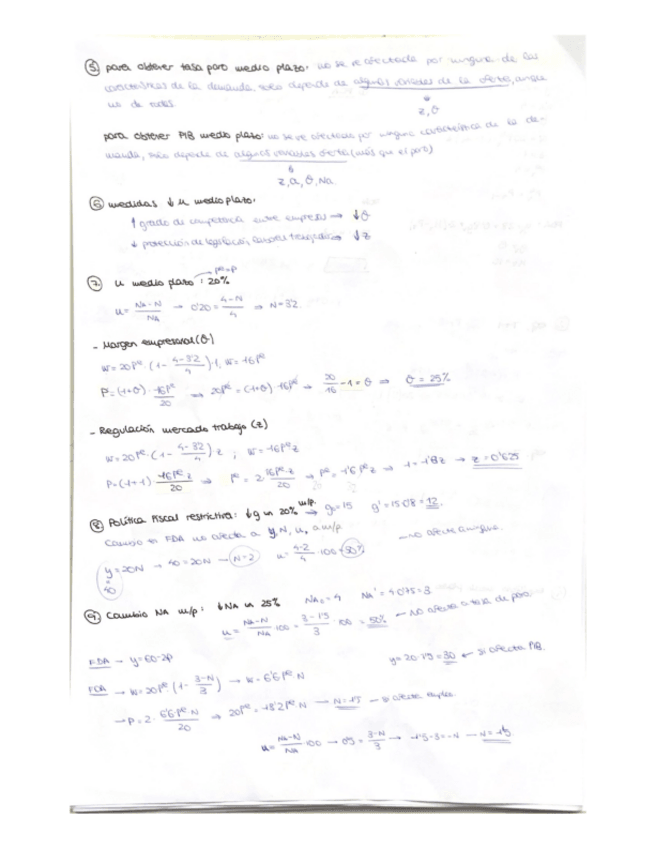 ⑤ para obtener tasa paro medio plazo: no se ve afectada por ninguna de las
características de la demanda, solo depende de algunas variables de la oferta, aunque
no de todas.
z, θ
para obtener PIB medio plazo: no se ve afectado por ninguna característica de la de-
manda, solo depende de algunas variables oferta (más que el paro)
z, a, θ, Na
⑥ medidas ↓ u medio plazo:
↑ grado de competencia entre empresas → ↓θ
↓ protección de legislación laboral → ↓z
⑦ u medio plazo : 20%
pe=p
u = NA-N / NA → 0'20 = 4-N / 4 → N=3'2
- Margen empresarial (θ)
W = 20Pe · (1 - 4-3'2 / 4) · 1, W = 16Pe
P = (1+θ) · 16Pe / 20 → 20Pe = (1+θ) · 16Pe → 20/16 - 1 = θ ⇒ θ = 25%
- Regulación mercado trabajo (z)
W = 20Pe · (1 - 4-3'2 / 4) · z ; W = 16Pe z
P = (1+1) · 16Pe z / 20 → Pe = 2 · 16Pe z / 20 → Pe = 1'6Pe z → z = 0'625
⑧ Política fiscal restrictiva: ↓g un 20% m/p. → g=15 g' = 15·0'8 = 12.
Cambio en FDA no afecta a y, N, u, a m/p
y = 20N → 40 = 20N → N=2 u = 4-2 / 4 · 100 = 50%
=
40
⑨ Cambio NA m/p: ↓NA un 25% NA = 4 NA' = 4·0'75 = 3
u = NA-N / NA · 100 = 3-1'5 / 3 · 100 = 50% ← no afecta a tasa de paro.
FDA → y = 60-2p y = 20·1'5 = 30 ← sí afecta PIB.
FOA → W = 20Pe (1 - 3-N / 3) → W = 6'6Pe N
→ P = 2 · 6'6Pe N / 20 → 20Pe = 13'2Pe N → N = 1'5 → sí afecta
u = NA-N / NA · 100 → 0'5 = 3-N / 3 → 1'5-3 = -N → N = 1'5.